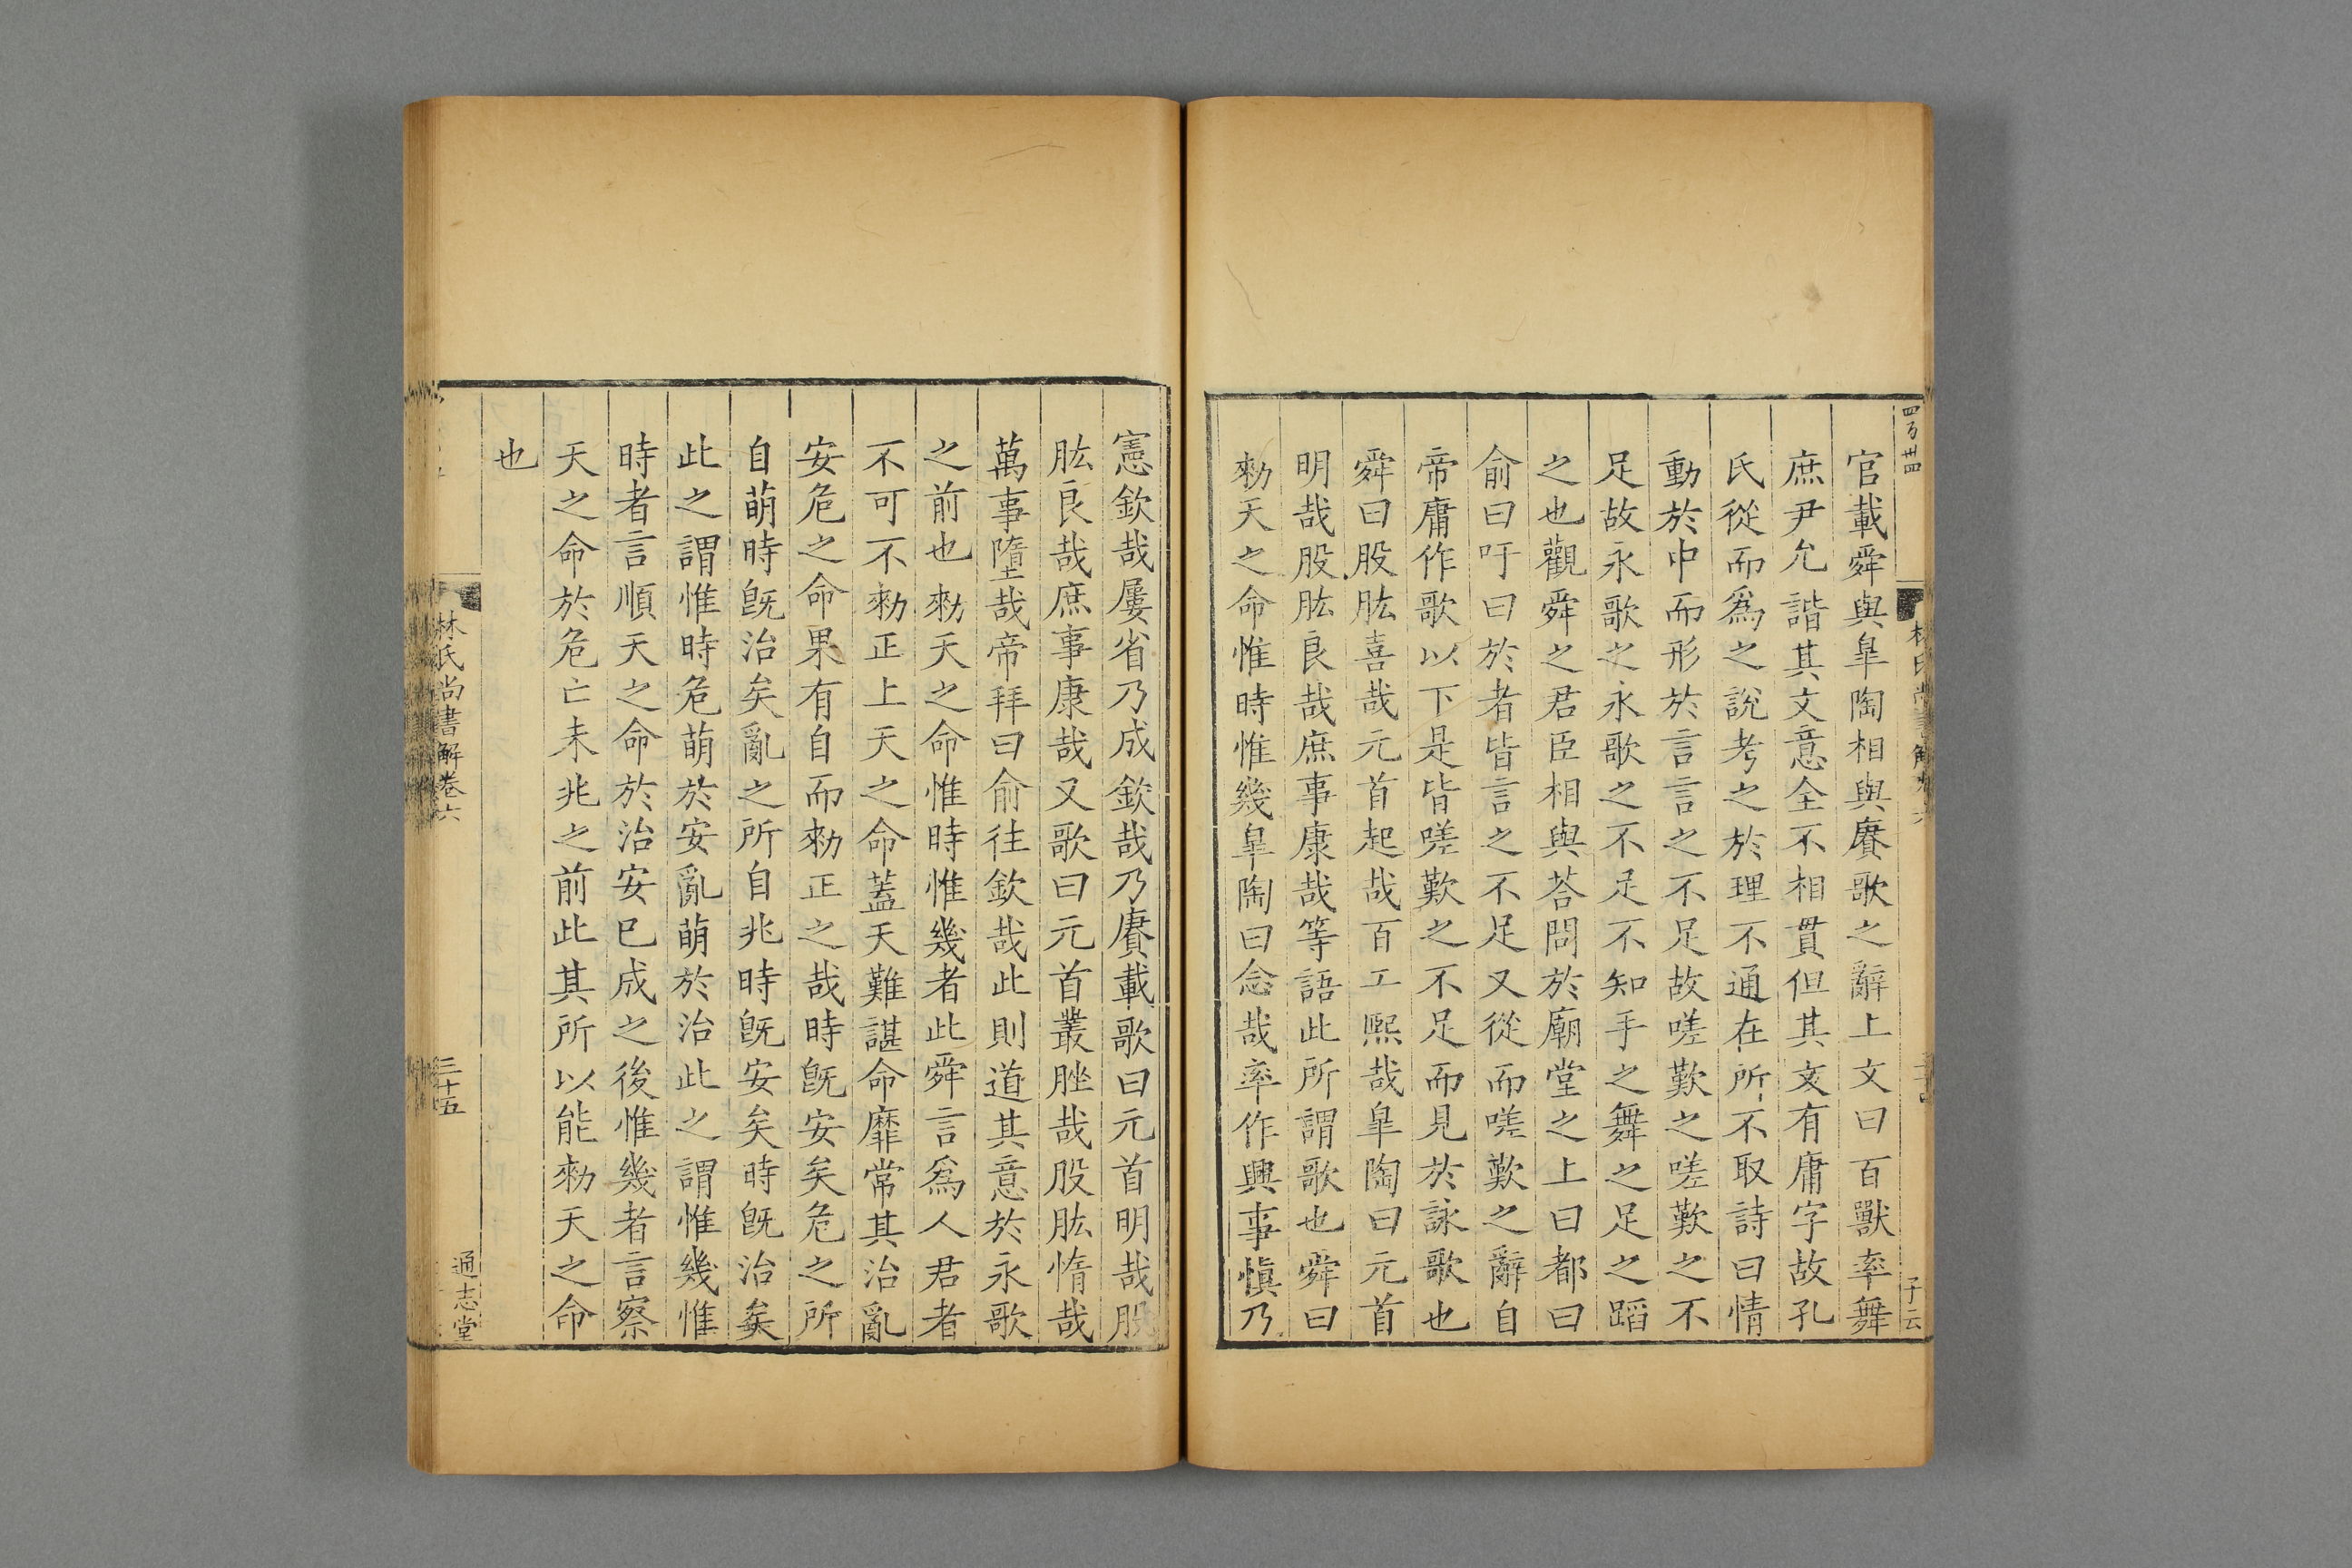 四百卅四
林氏尚書解卷六
子云
官載舜與臯陶相與賡歌之辭上文曰百獸率舞
庶尹允諧其文意全不相貫但其文有庸字故孔
氏從而爲之說考之於理不通在所不取詩曰情
動於中而形於言言之不足故嗟歎之嗟歎之不
足故永歌之永歌之不足不知手之舞之足之蹈
之也觀舜之君臣相與荅問於廟堂之上曰都曰
俞曰吁曰於者皆言之不足又從而嗟歎之辭自
帝庸作歌以下是皆嗟歎之不足而見於詠歌也
舜曰股肱喜哉元首起哉百工熙哉臯陶曰元首
明哉股肱良哉庶事康哉等語此所謂歌也舜曰
勑天之命惟時惟幾臯陶曰念哉率作興事愼乃
憲欽哉屢省乃成欽哉乃賡載歌曰元首明哉股
肱良哉庶事康哉又歌曰元首叢脞哉股肱惰哉
萬事墮哉帝拜曰俞往欽哉此則道其意於永歌
之前也勑天之命惟時惟幾者此舜言爲人君者
不可不勑正上天之命蓋天難諶命靡常其治亂
安危之命果有自而勑正之哉時旣安矣危之所
自萌時旣治矣亂之所自兆時旣安矣時旣治矣
此之謂惟時危萌於安亂萌於治此之謂惟幾惟
時者言順天之命於治安已成之後惟幾者言察
天之命於危亡未兆之前此其所以能勑天之命
也
林氏尚書解卷六
三十五
通志堂